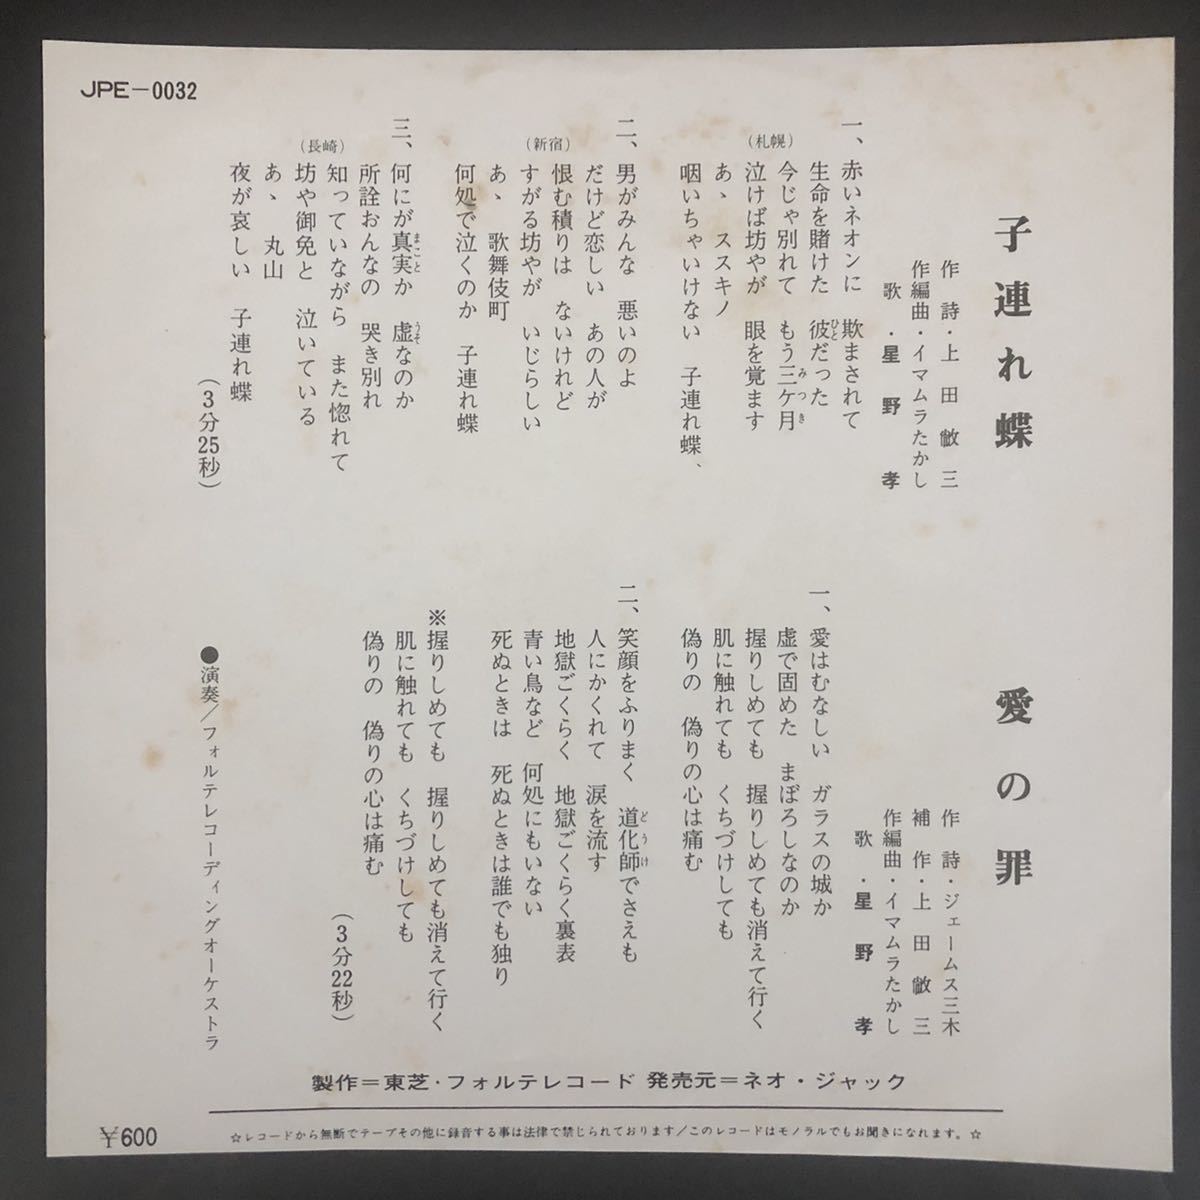 JPE-0032
子連れ蝶
作詩・上田敏三
作編曲・イマムラたかし
歌・星野孝
一、赤いネオンに　欺まされて
生命を賭けた　彼だった
ひと
今じゃ別れて　もう三ケ月
みつき
(札幌)
泣けば坊やが　眼を覚ます
あゝ　ススキノ
咽いちゃいけない　子連れ蝶、
二、男がみんな　悪いのよ
だけど恋しい　あの人が
恨む積りは　ないけれど
(新宿)
すがる坊やが　いじらしい
あゝ　歌舞伎町
何処で泣くのか　子連れ蝶
三、何にが真実か　虚なのか
まこと
うそ
所詮おんなの　哭き別れ
知っていながら　また惚れて
(長崎)
坊や御免と　泣いている
あゝ　丸山
夜が哀しい　子連れ蝶
(3分25秒)
愛の罪
作詩・ジェームス三木
補作・上田敏三
作編曲・イマムラたかし
歌・星野孝
一、愛はむなしい　ガラスの城か
虚で固めた　まぼろしなのか
握りしめても　握りしめても消えて行く
肌に触れても　くちづけしても
偽りの　偽りの心は痛む
二、笑顔をふりまく　道化師でさえも
どうけ
人にかくれて　涙を流す
地獄ごくらく　地獄ごくらく裏表
青い鳥など　何処にもいない
死ぬときは　死ぬときは誰でも独り
※握りしめても　握りしめても消えて行く
肌に触れても　くちづけしても
偽りの　偽りの心は痛む
(3分22秒)
●演奏/フォルテレコーディングオーケストラ
製作=東芝・フォルテレコード 発売元=ネオ・ジャック
¥600
☆レコードから無断でテープその他に録音する事は法律で禁じられております/このレコードはモノラルでもお聞きになれます。☆